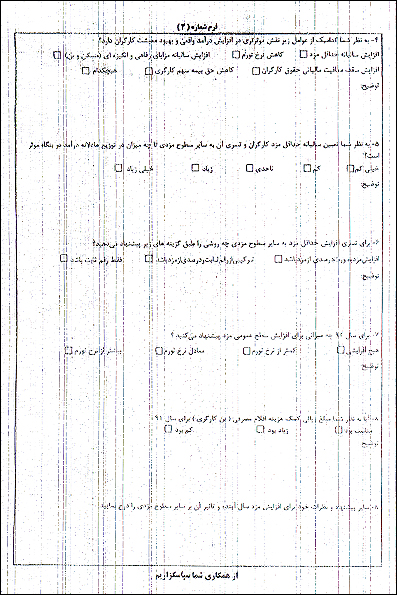 فرم شماره (۲)
۴- به نظر شما کدامیک از عوامل زیر نقش موثرتری در افزایش درآمد واقعی و بهبود معیشت کارگران دارد؟
افزایش سالیانه حداقل مزد □ کاهش نرخ تورم □ افزایش سالیانه مزایای رفاهی و انگیزه ای (مسکن و بن) □
افزایش سقف معافیت مالیاتی حقوق کارگران □ کاهش حق بیمه سهم کارگری □ هیچکدام □
توضیح:
۵- به نظر شما تعیین سالیانه حداقل مزد کارگران و تسری آن به سایر سطوح مزدی تا چه میزان در توزیع عادلانه درآمد در بنگاه موثر
است؟
خیلی کم □ کم □ تاحدی □ زیاد □ خیلی زیاد □
توضیح:
۶- برای تسری افزایش حداقل مزد به سایر سطوح مزدی چه روشی را طبق گزینه های زیر پیشنهاد می‌دهید؟
افزایش مزد بصورت درصدی از مزد باشد □ ترکیبی از رقم ثابت و درصدی از مزد باشد □ فقط رقم ثابت باشد □
توضیح:
۷- برای سال ۹۲ چه میزانی برای افزایش سطح عمومی مزد پیشنهاد می‌کنید؟
هیچ افزایشی □ کمتر از نرخ تورم □ معادل نرخ تورم □ بیشتر از نرخ تورم □
توضیح
۸- آیا به نظر شما مبلغ ریالی کمک هزینه اقلام مصرفی (بن کارگری) برای سال ۹۱
مناسب بود □ زیاد بود □ کم بود □
توضیح
۸- سایر پیشنهاد و نظرات خود برای افزایش مزد سال آینده و تاثیر آن بر سایر سطوح مزدی را درج نمایید
از همکاری شما سپاسگزاریم